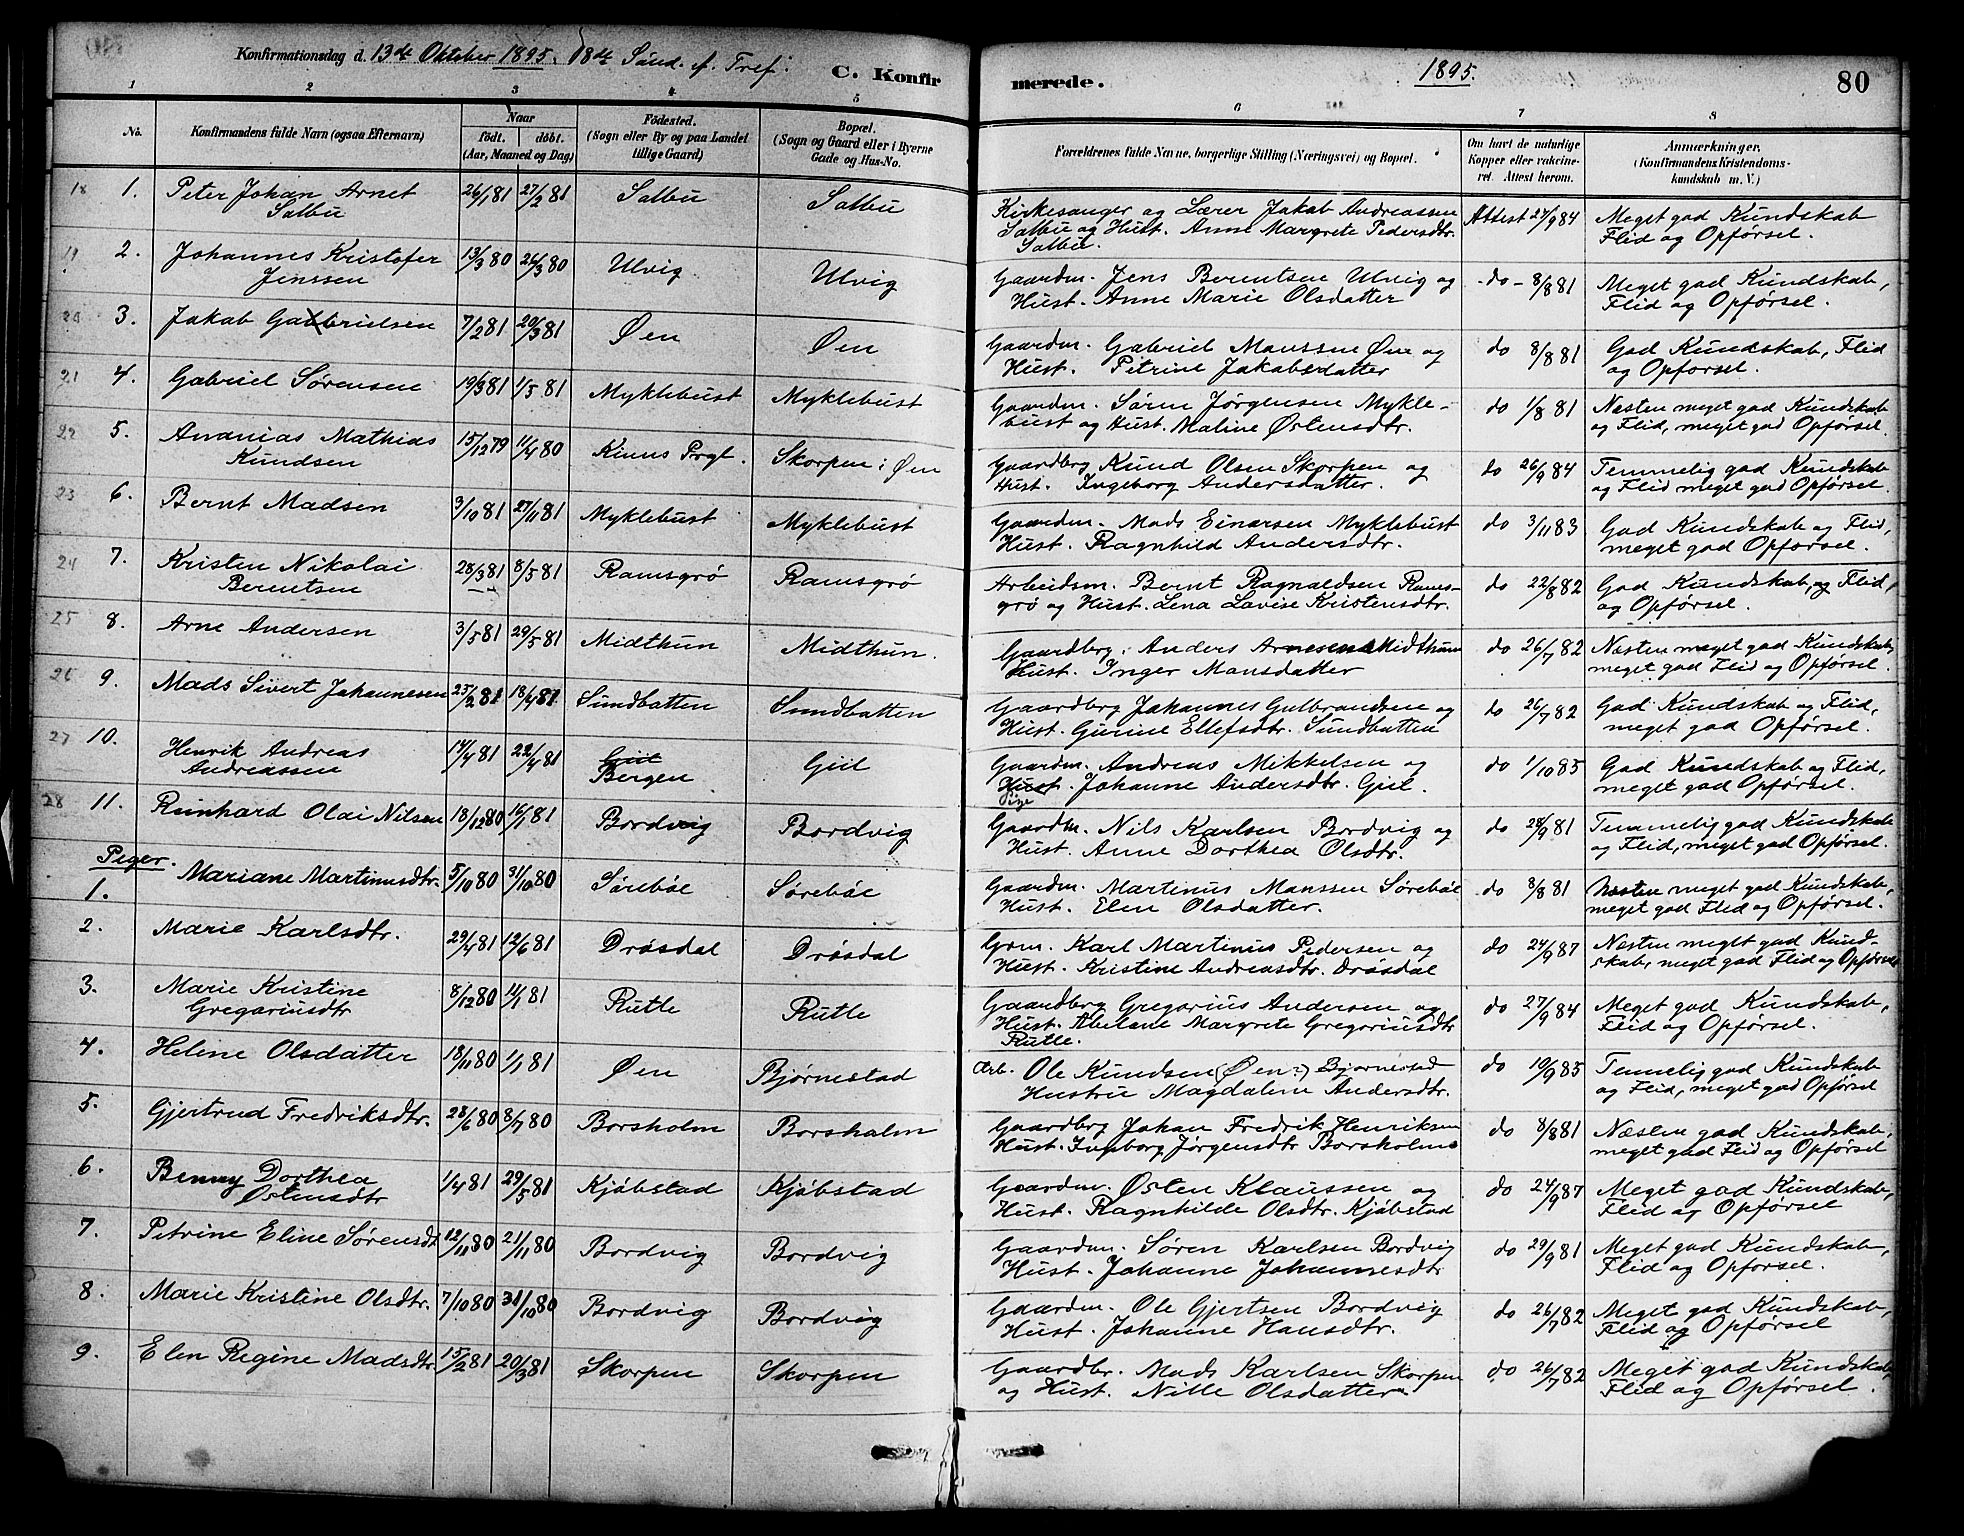 Konfirmationsdag d. 13de Oktober 1895. 18de Sønd. e. Tref.
C. Konfirmerede.
1895.
80
1 2 3 4 5 6 7 8
No. Konfirmandens fulde Navn (ogsaa Efternavn) Naar født. døbt. (Aar, Maaned og Dag) Fødested. (Sogn eller By og paa Landet tillige Gaard) Bopæl. (Sogn og Gaard eller i Byerne Gade og Hus-No. Forældrenes fulde Navne, borgerlige Stilling (Næringsvei) og Bopæl. Om havt de naturlige Kopper eller vakcineret. Attest herom. Anmærkninger. (Konfirmandens Kristendomskundskab m. V.)
18 1. Peter Johan Arnet Salbu 26/1 81 27/2 81 Salbu Salbu Kirkesanger og Lærer Jakob Andreassen Salbu og Hust. Anne Margrete Pedersdtr. Salbu. Attest 27/9 84 Meget god Kundskab Flid og Opførsel.
19 2. Johannes Kristofer Jenssen 13/3 80 26/3 80 Ulvig Ulvig Gaardm. Jens Berentsen Ulvig og Hust. Anne Marie Olsdatter - do - 8/8 81 Meget god Kundskab, Flid og Opførsel.
20 3. Jakob Gabrielsen 7/2 81 20/3 81 Øen Øen Gaardm. Gabriel Monssen Øen og Hust. Petrine Jakobsdatter do 8/8 81 God Kundskab, Flid og Opførsel.
21 4. Gabriel Sørensen 19/3 81 1/5 81 Myklebust Myklebust Gaardm. Søren Jørgensen Myklebust og Hust. Maline Østensdtr. do 1/8 81 Næsten meget god Kundskab og Flid, meget god Opførsel.
22 5. Ananias Mathias Knudsen 15/12 79 11/4 80 Kinns Prgl. Skorpen i Øen Gaardbrg Knud Olsen Skorpen og Hust. Ingeborg Andersdatter. do 26/9 84 Temmelig god Kundskab og Flid meget god Opførsel.
23 6. Bernt Madsen 3/10 81 27/11 81 Myklebust Myklebust Gaardm. Mads Einarsen Myklebust Hust. Ragnhild Andersdtr. do 3/11 83 God Kundskab og Flid, meget god Opførsel.
24 7. Kristen Nikolai Berentsen 28/3 81 8/5 81 Ramsgrø Ramsgrø Arbeidsm. Bernt Ragnaldsen Ramsgrø og Hust. Lena Lovise Kristensdtr. do 22/8 82 God Kundskab, og Flid, og Opførsel.
25 8. Arne Andersen 3/5 81 29/5 81 Midthun Midthun. Gaardbrg. Anders Arnesen Midthun Hust. Inger Monsdatter do 26/7 82 Næsten meget god Kundskab, meget god Flid og Opførsel.
26 9. Mads Sivert Johannesen 25/2 81 18/4 81 Sundbatten Sundbatten Gaardbrg Johannes Gulbrandsen og Hust. Gurine Ellefsdtr. Sundbatten do 26/7 82 God Kundskab og Flid, meget god Opførsel.
27 10. Henrik Andreas Andreassen 14/4 81 22/4 81 Giil Bergen Giil Gaardm. Andreas Mikkelsen og Hust. Pige Johanne Andersdtr. Giil. do 1/10 85 God Kundskab og Flid, meget god Opførsel.
28 11. Reinhard Olai Nilsen 18/12 80 16/1 81 Bordvig Bordvig Gaardm. Nils Karlsen Bordvig og Hust. Anne Dorthea Olsdtr. do 28/9 81 Temmelig god Kundskab og Flid, meget god Opførsel.
Piger.
1. Mariane Martinusdtr. 5/10 80 31/10 80 Sørebøe Sørebøe Gaardm. Martinus Monssen Sørebøe Hust. Elen Olsdatter. do 8/8 81 Næsten meget god Kundskab, meget god Flid og Opførsel.
2. Marie Karlsdtr. 29/4 81 12/6 81 Drøsdal Drøsdal Grm. Karl Martinus Pedersen og Hust. Kristine Andreasdtr. Drøsdal do 24/9 87 Næsten meget god Kundskab, meget god Flid og Opførsel
3. Marie Kristine Gregoriusdtr 8/12 80 1/1 81 Rutle Rutle Gaardbrg Gregorius Andersen og Hust. Abelone Margrete Gregoriusdtr Rutle. do 27/9 84 Meget god Kundskab, Flid og Opførsel.
4. Heline Olsdatter 18/11 80 1/1 81 Øen Bjørnestad Arb. Ole Knudsen (Øen:) Bjørnestad Hustru Magdalene Andersdtr. do 19/9 85 Temmelig god Kundskab og Flid, meget god Opførsel
5. Gjertrud Fredriksdtr. 28/6 80 8/7 80 Borsholm Borsholm Gaardbrg Johan Fredrik Henriksen Hust. Ingborg Jørgensdtr Borsholm do 8/8 81 Næsten god Kundskab, meget god Flid og Opførsel
6. Benny Dorthea Østensdtr 1/4 81 29/5 81 Kjøbstad Kjøbstad Gaardm. Østen Klaussen og Hust. Ragnhilde Olsdtr. Kjøbstad do 24/9 87 Meget god Kundskab, Flid og Opførsel
7. Petrine Eline Sørensdt 12/11 80 21/11 80 Bordvig Bordvig Gaardm. Søren Karlsen Bordvig Hust. Johanne Johannesdtr do 29/9 81 Meget god Kundskab, Flid og Opførsel.
8. Marie Kristine Olsdtr. 7/10 80 31/10 80 Bordvig Bordvig Gaardm. Ole Gjertsen Bordvig Hust. Johanne Hansdtr. do 26/7 82 Meget god Kundskab, Flid og Opførsel
9. Elen Regine Madsdtr 15/2 81 20/3 81 Skorpen Skorpen Gaardbr. Mads Karlsen Skorpen og Hust. Nille Olsdatter do 26/7 82 Meget god Kundskab, Flid og Opførsel.